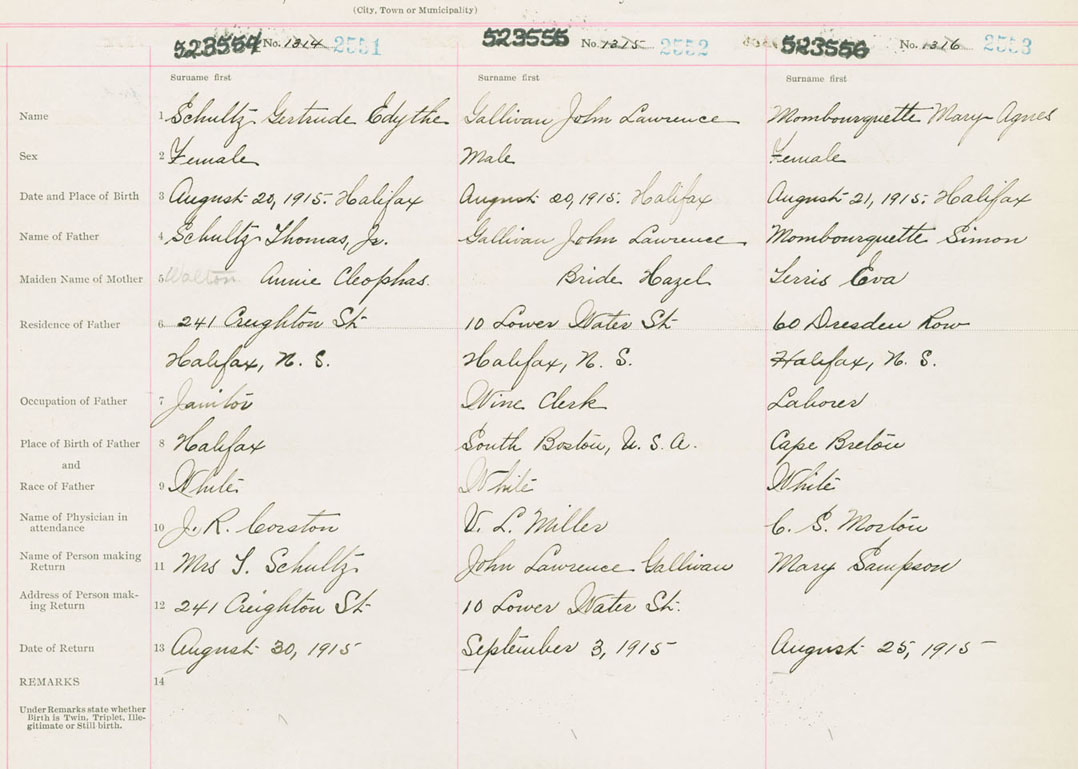 (City, Town or Municipality)
523554 No. 1314 2551 523555 No. 1315 2552 523556 No. 1316 2553
Surname first Surname first Surname first
Name 1 Schultz Gertrude Edythe Gallivan John Lawrence Mombourquette Mary Agnes
Sex 2 Female Male Female
Date and Place of Birth 3 August 20, 1915. Halifax August 20, 1915. Halifax August 21, 1915. Halifax
Name of Father 4 Schultz Thomas, Jr. Gallivan John Lawrence Mombourquette Simon
Maiden Name of Mother 5 Walton Annie Cleophas. Bride Hazel Serris Eva
Residence of Father 6 241 Creighton St. 10 Lower Water St. 60 Dresden Row
Halifax, N. S. Halifax, N. S. Halifax, N. S.
Occupation of Father 7 Janitor Wine Clerk Laborer
Place of Birth of Father 8 Halifax South Boston, U. S. A. Cape Breton
and
Race of Father 9 White White White
Name of Physician in
attendance 10 J. R. Corston V. L. Miller C. S. Morton
Name of Person making
Return 11 Mrs T. Schultz John Lawrence Gallivan Mary Sampson
Address of Person mak-
ing Return 12 241 Creighton St. 10 Lower Water St.
Date of Return 13 August 30, 1915 September 3, 1915 August 25, 1915
REMARKS 14
Under Remarks state whether
Birth is Twin, Triplet, Ille-
gitimate or Still birth.